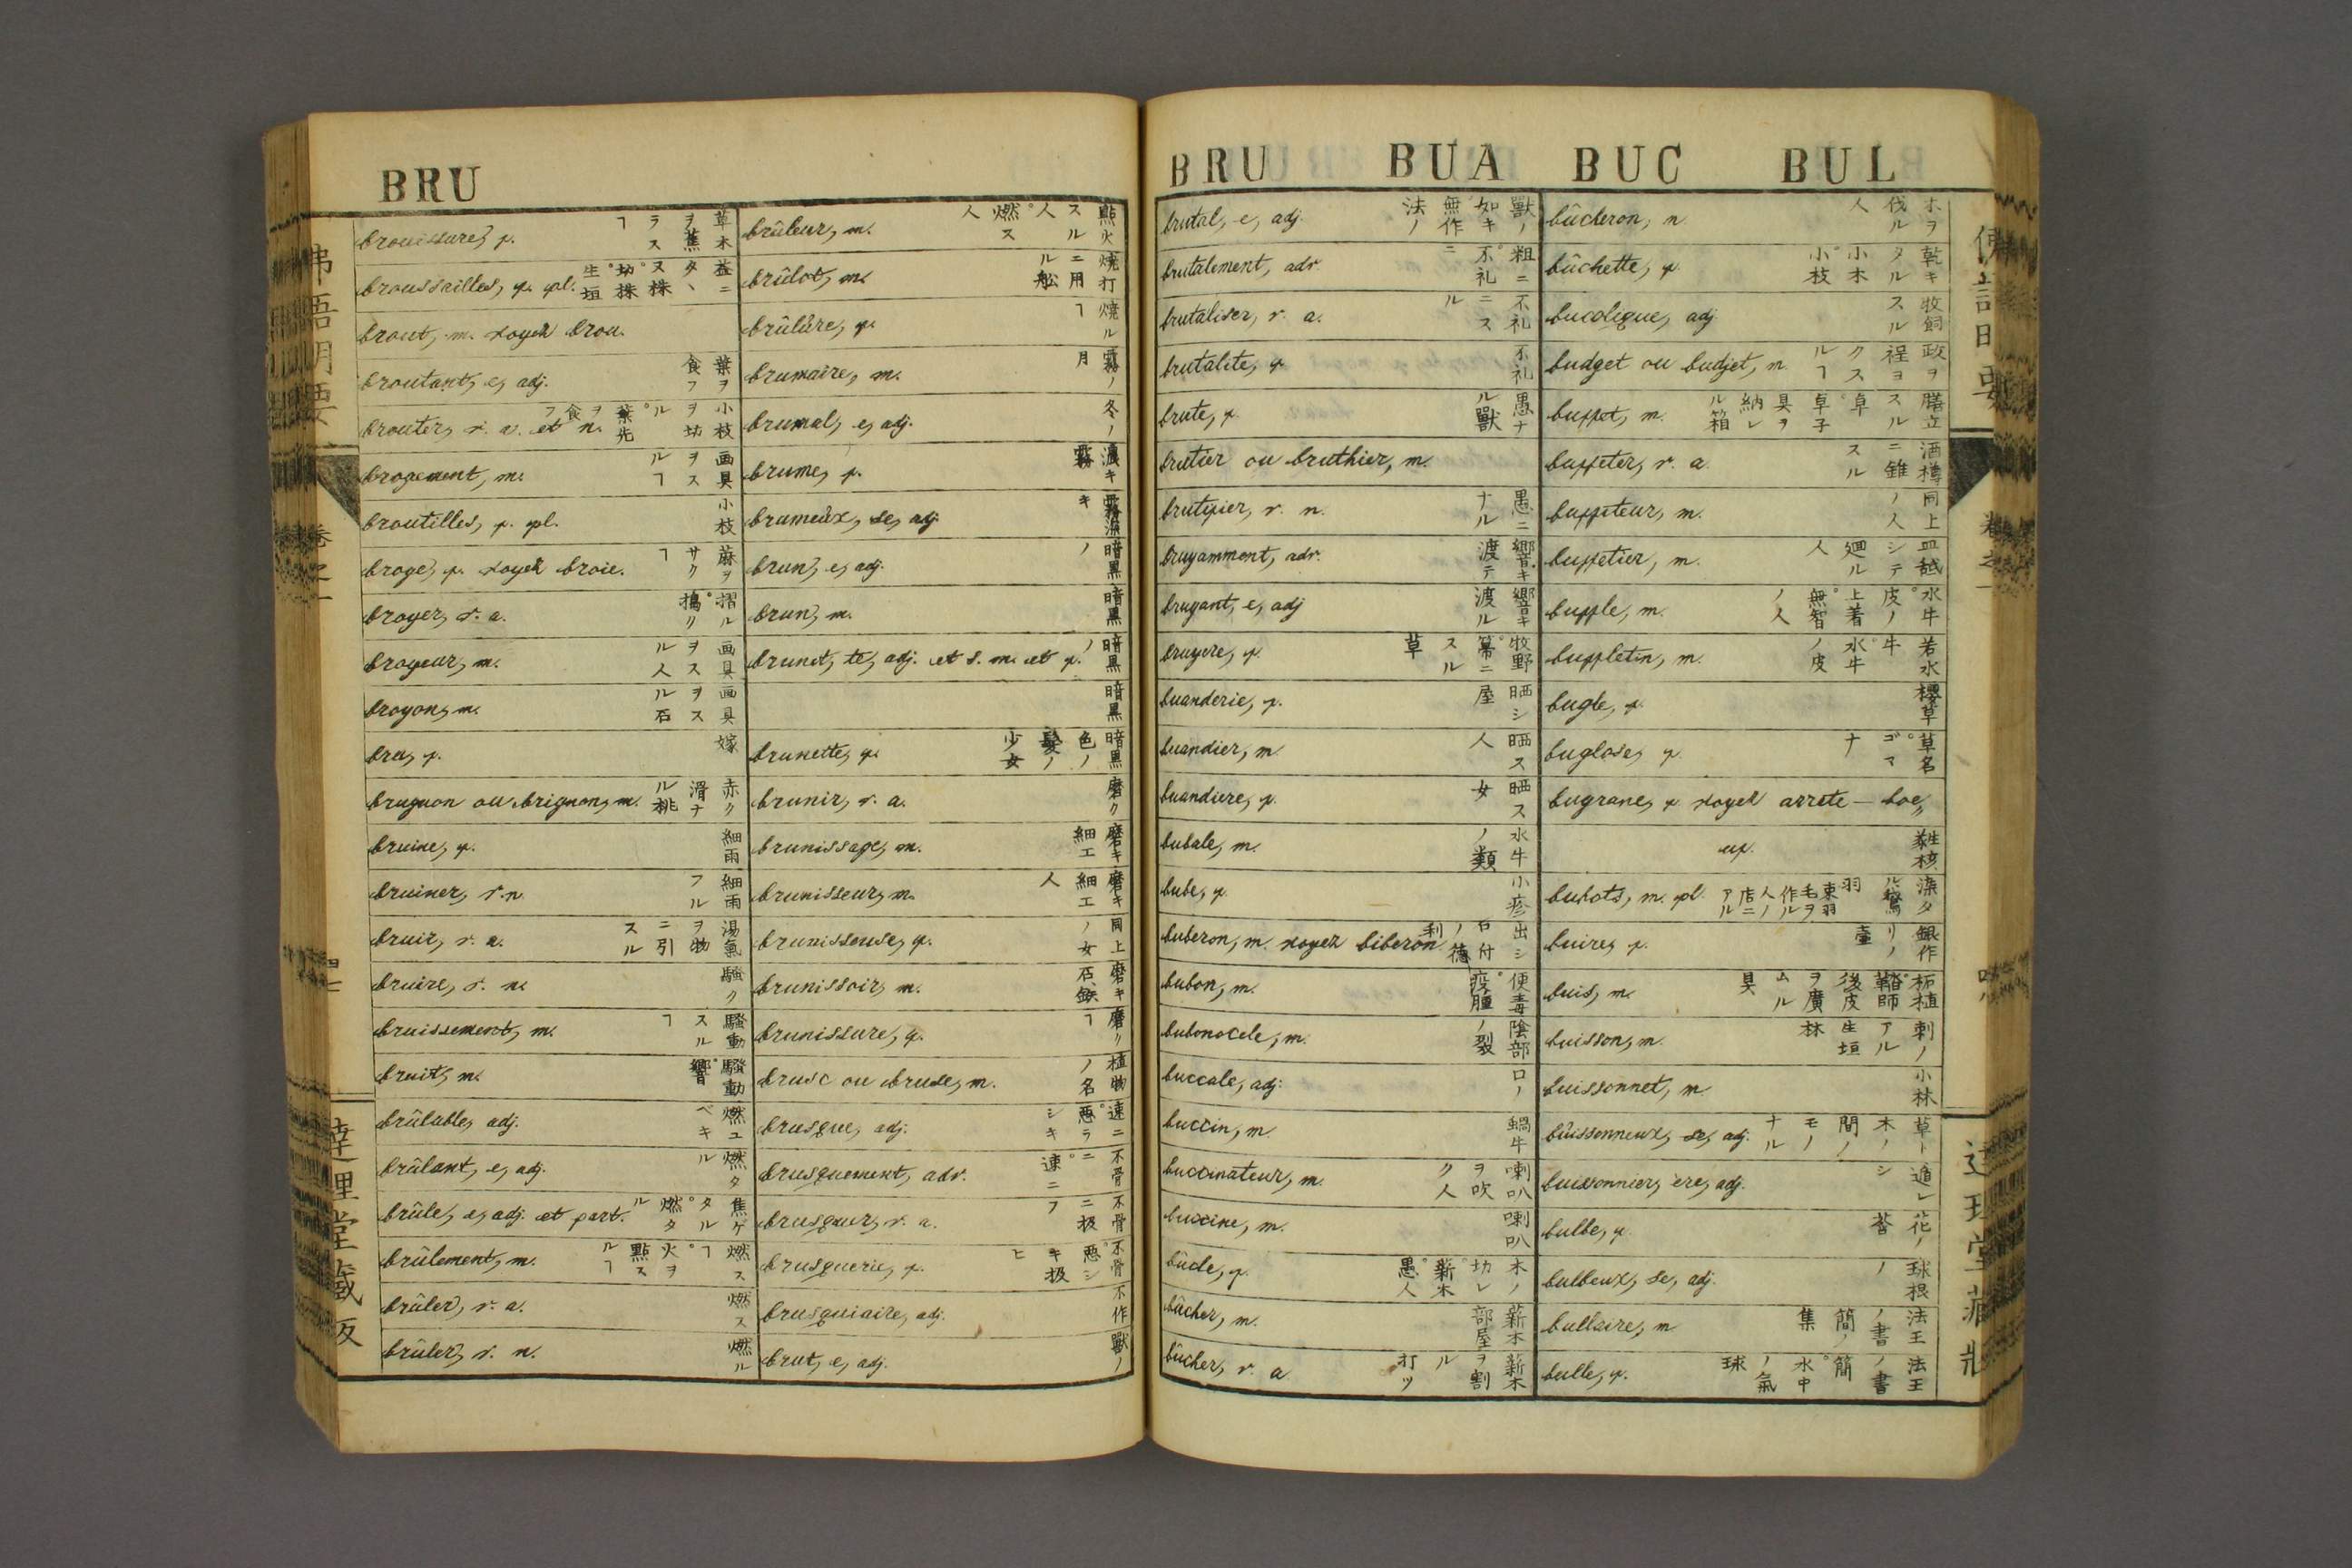 BRU
brouissure, f. 草木ヲ蕉ラスヿ
broussailles, f. pl. 益ニタヽヌ株°切株°生垣
brout, m. voyez brou.
broutant, e, adj. 葉ヲ食フ
brouter, v. a. et n. 小枝ヲ切ル°葉先ヲ食フ
brogement, m. 画具ヲスルヿ
broutilles, f. pl. 小枝
broge, f. voyez broie. 麻ヲサクヿ
broyer, v. a. 摺ル°搗ク
broyeur, m. 画具ヲスル人
broyon, m. 画具ヲスル石
bru, f. 嫁
brugnon ou brignon, m. 赤ク滑ナル桃
bruine, f. 細雨
bruiner, v. n. 細雨フル
bruir, v. a. 湯氣ヲ物ニ引スル
bruire, v. n. 騒ク
bruissement, m. 騒動スルヿ
bruit, m. 騒動°響
brûlable, adj. 燃ユベキ
brûlant, e, adj. 燃タル
brûle, e, adj. et part. 焦ゲタル°燃タル
brûlement, m. 燃スヿ°火ヲ點スルヿ
brûler, v. a. 燃ス
brûler, v. n. 燃ル
brûleur, m. 點火スル人°燃ス人
brûlot, m. 焼打ニ用ル舩
brûlûre, f. 焼ルヿ
brumaire, m. 霧ノ月
brumal, e, adj. 冬ノ
brume, f. 濃キ霧
brumeûx, se, adj. 霧深キ
brun, e, adj. 暗黒ノ
brun, m. 暗黒
brunet, te, adj. et s. m. et f. 暗黒ノ
暗黒
brunette, f. 暗黒色ノ髪ノ少女
brunir, v. a. 磨ク
brunissage, m. 磨キ細工
brunisseur, m. 磨キ細工人
brunisseuse, f. 同上ノ女
brunissoir, m. 磨キ石、鉄
brunissure, f. 磨クヿ
brusc ou bruse, m. 植物ノ名
brusque, adj. 速ニ°悪ラシキ
brusquement, adv. 不骨ニ°速ニ
brusquer, v. a. 不骨ニ扱フ
brusquerie, f. 不骨°悪シキ扱ヒ
brusquiaire, adj. 不作
brut, e, adj. 獸ノ
BRU BUA BUC BUL
brutal, e, adj. 獸ノ如キ°無作法ノ
brutalement, adv. 粗ニ°不礼ニ
brutaliser, v. a. 不礼ニスル
brutalite, f. 不礼
brute, f. 愚ナル獸
brutier ou bruthier, m.
brutifier, v. n. 愚ニナル
bruyamment, adv. 響キ渡テ
brugant, e, adj 響キ渡ル
bruyere, f. 牧野°箒ニスル草
buanderie, f. 晒シ屋
buandier, m 晒ス人
buandiere, f. 晒ス女
bubale, m. 水牛ノ類
bube, f. 小疹
buberon, m. voyez biberon 出シ口付ノ徳利
bubon, m. 便毒°疫腫
bubonocele, m. 陰部ノ裂
buccale, adj. 口ノ
buccin, m. 蝸牛
buccinateur, m. 喇叭ヲ吹ク人
buccine, m. 喇叭
bûche, f. 木ノ切レ°薪木°愚人
bûcher, m. 薪木部屋
bûcher, v. a 薪木ヲ割ル打ツ
bûcheron, n 木ヲ伐ル人
bûchette, f. 乾キタル小木°小枝
bucolique, adj 牧飼スル
budget ou budjet, m. 政ヲ程ヨクスルヿ
buffet, m. 膳立スル卓°卓子具ヲ納レル箱
buffeter, v. a. 酒樽ニ錐スル
buffeteur, m. 同上ノ人
buffetier, m. 皿越シテ廻ル人
buffle, m. 水牛°皮ノ上着°無智ノ人
buffletin, m. 若水牛°水牛ノ皮
bugle, f. 櫻草
buglose, f. 草名°ゴマナ
bugrane, f voyez arrete-boeuf.
buhots, m. pl.
buire, f. 銀作リノ壷
buis, m. 柘植
buisson, m. 刺ノアル生垣°林
buissonnet, m 小林
buissonneux, se, adj. 草ト木ノ間ノモノナル
buissonnier, ere, adj. 遁レシ
bulbe, f. 花ノ莟
bulbeux, se, adj. 球根ノ
bullaire, m 法王ノ書簡ノ集
bulle, f. 法王ノ書簡°水中ノ氣球